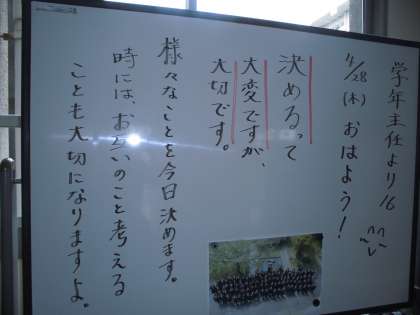 学年主任より 16
4/28(木) おはよう！
決めるって
大変ですが、
大切です。
様々なことを今日決めます。
時には、お互いのこと考える
ことも大切になりますよ。